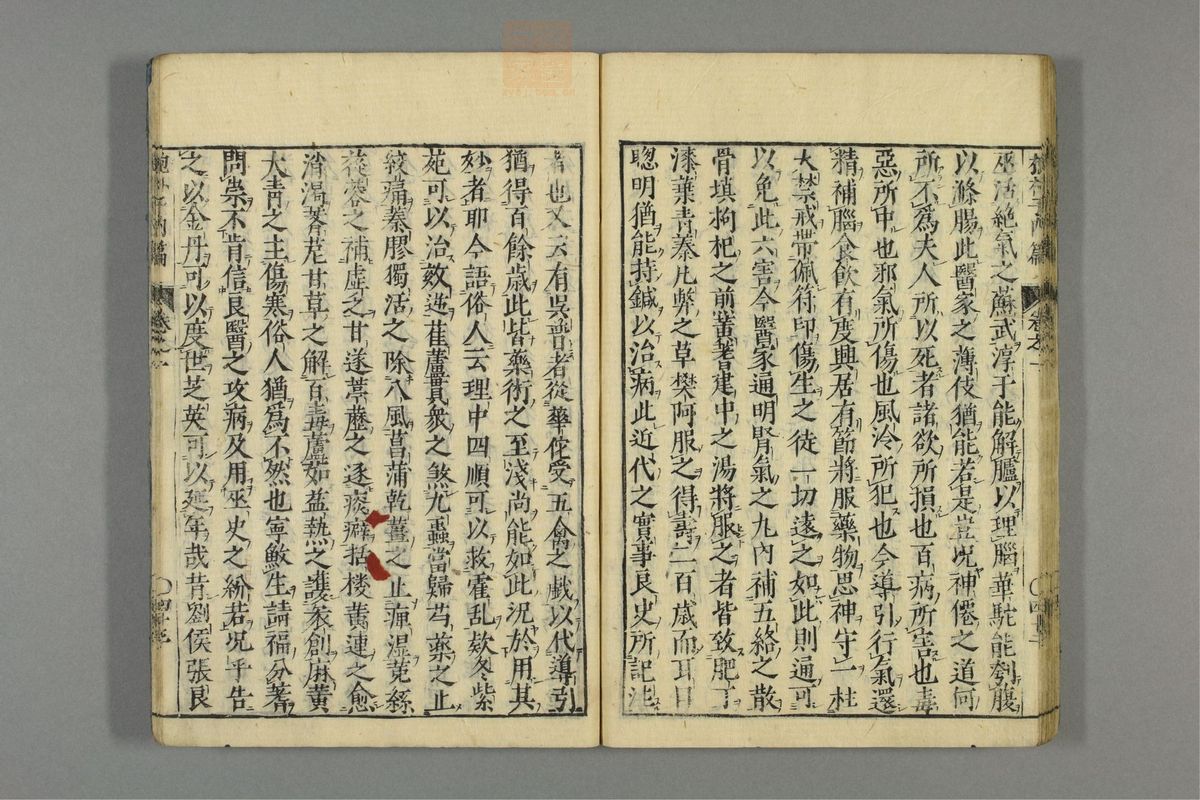 巫活絶氣之蘇武淳于能解臚以理腦華駝能刳腹
以滌腸此醫家之薄伎猶能若是豈况神僊之道何
所不爲夫人所以死者諸欲所損也百病所害也毒
惡所中也邪氣所傷也風冷所犯也今導引行氣還
精補腦食飲有度興居有節將服藥物思神守一柱
天禁戒帶佩符印傷生之徒一切遠之如此則通可
以免此六害今醫家通明腎氣之九內補五絡之散
骨填拘杞之前黄蓍建中之湯將服之者皆致肥丁
漆葉青蓁凡弊之草樊阿服之得壽二百歳而耳目
聰明猶能持鍼以治病此近代之實事良史所記注
者也又云有吳普者從華佗受五禽之戲以代導引
猶得百餘歳此皆藥術之至淺尚能如此况於用其
妙者耶今語俗人云理中四順可以救霍乱欵冬紫
苑可以治欬逆萑蘆貫衆之煞九蟲當歸芍藥之止
絞痛蓁膠獨活之除八風菖蒲乾薑之止痺湿菟絲
蓯蓉之補虛乏甘遂葶藶之逐痰癖括楼黄連之愈
消渴薺苨甘草之解百毒蘆如益熱之護衆創麻黄
大青之主傷寒俗人猶爲不然也寧敏生請福分蓍
問祟不肯信良醫之攻病及用巫史之紛若况乎告
之以金丹可以度世芝英可以延年哉昔劉侯張良